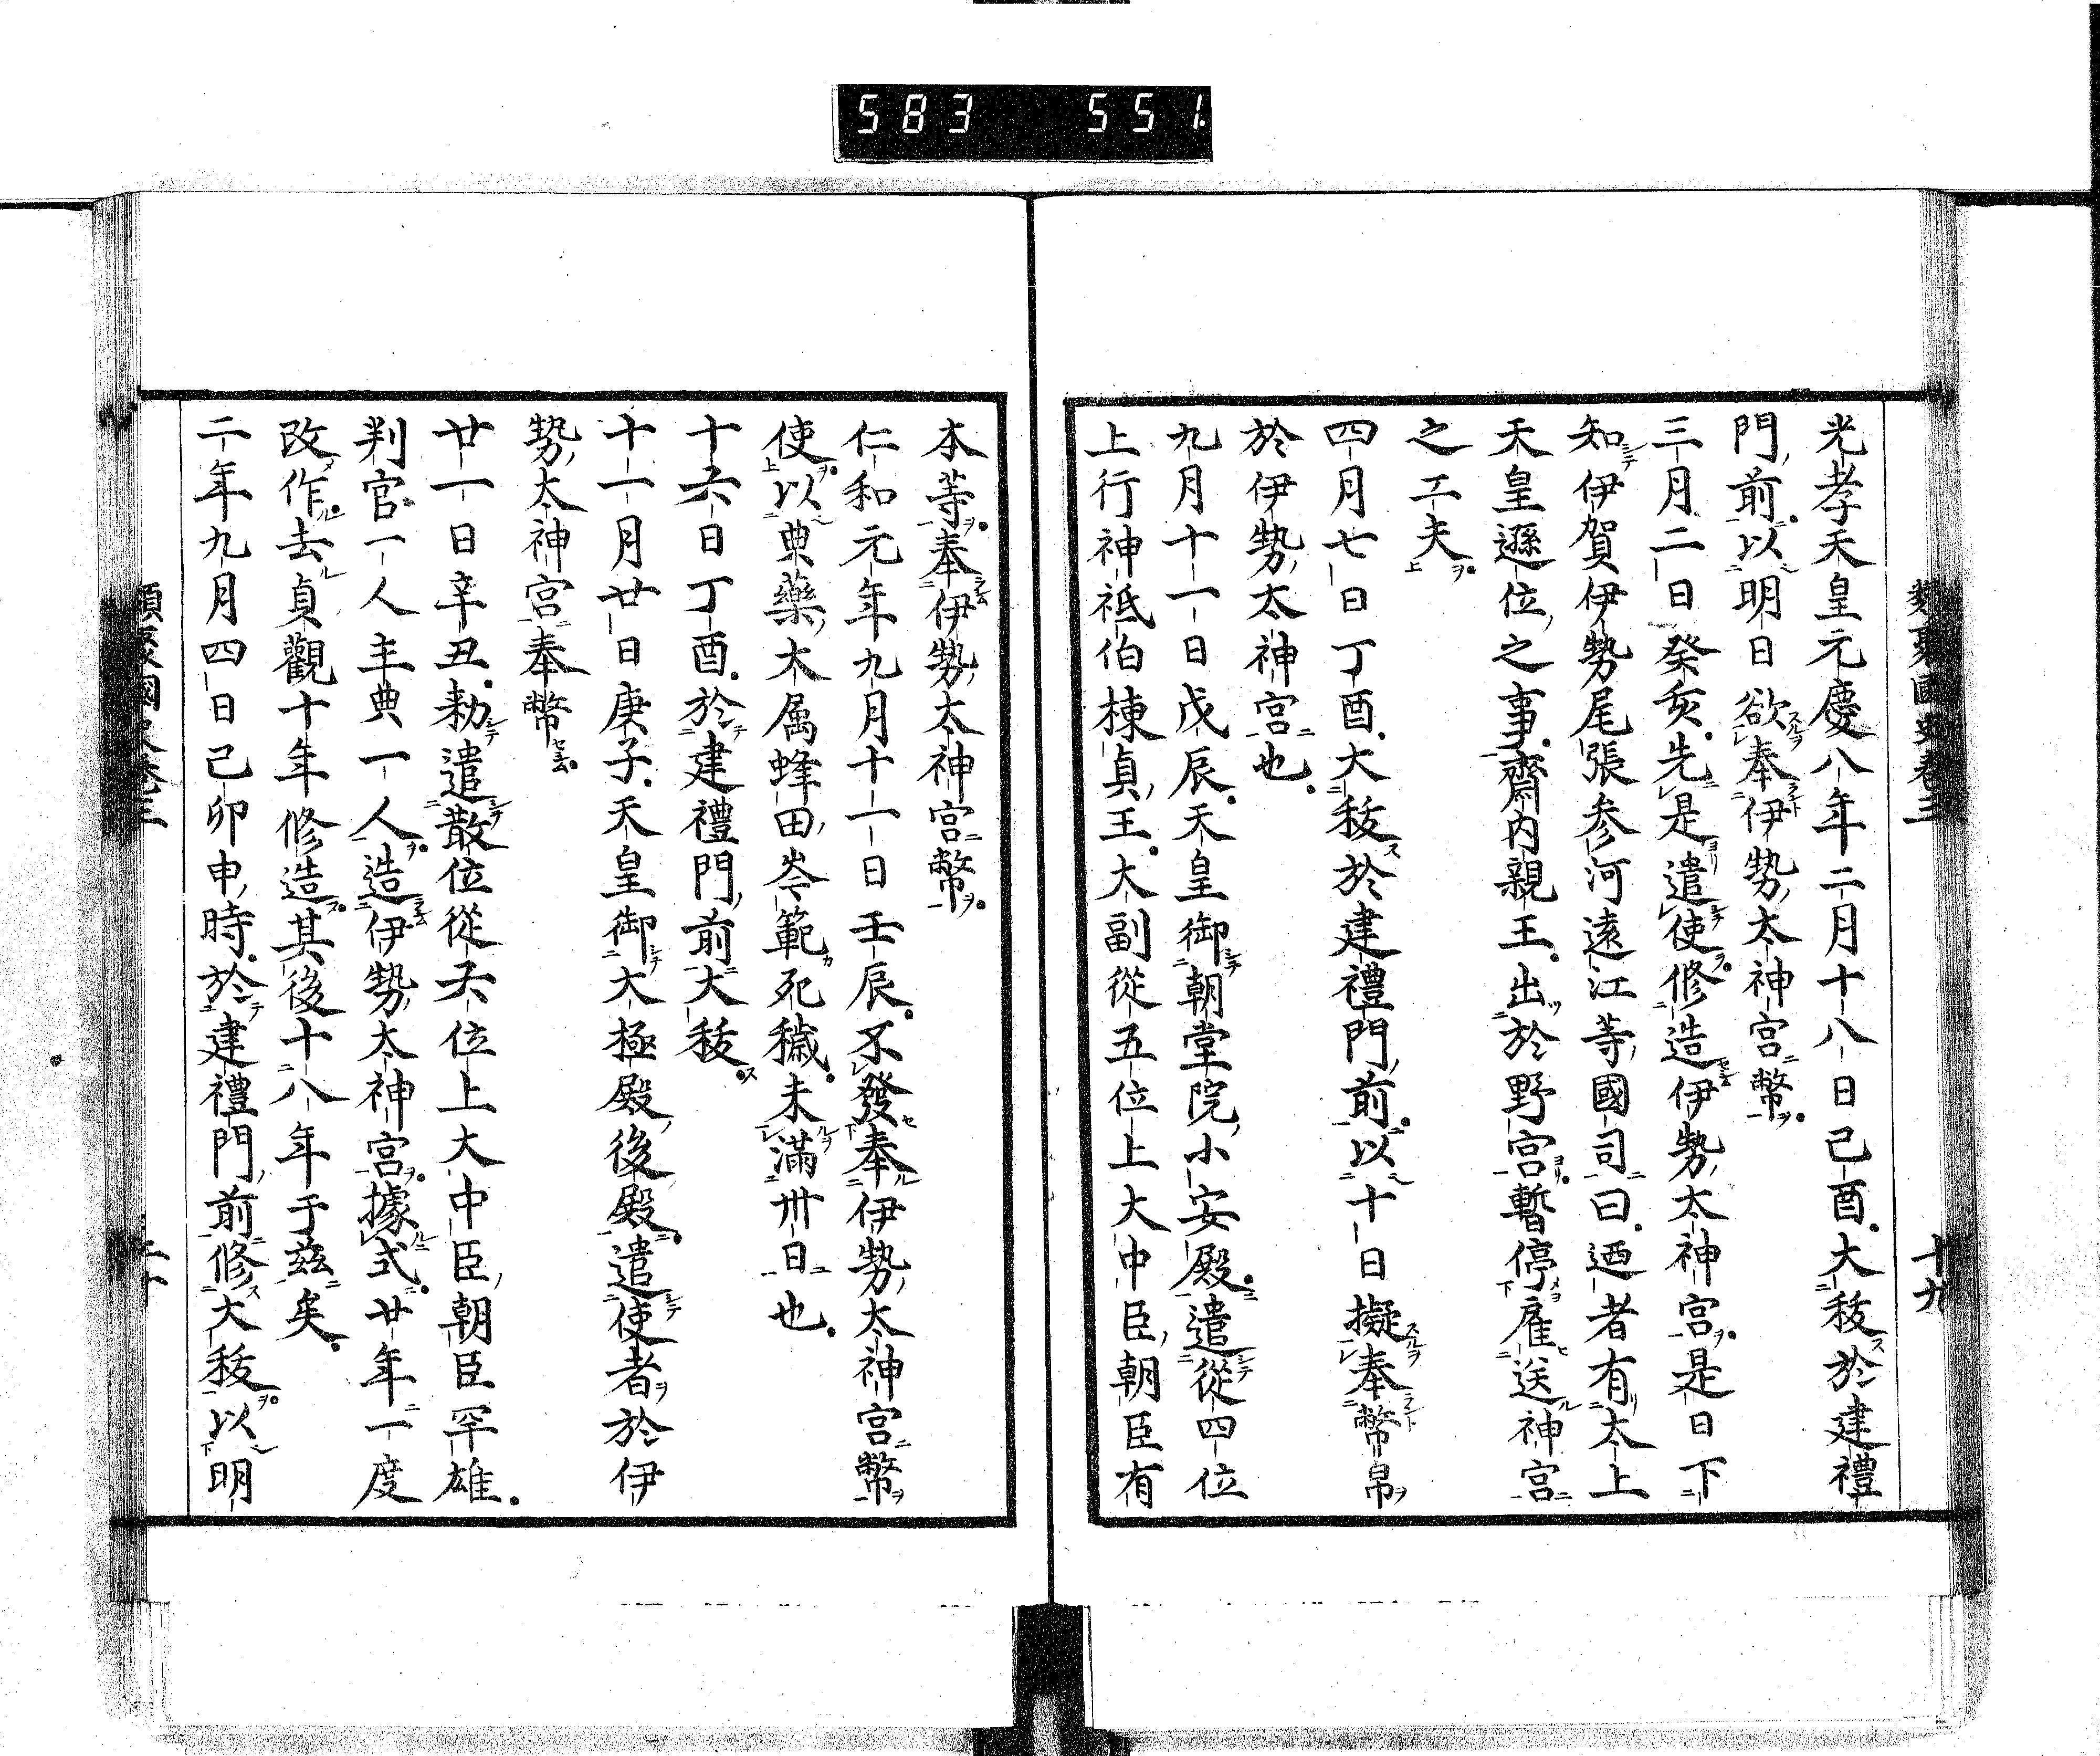 583 551
類聚國史卷三 十九
光孝天皇元慶八年二月十八日己酉大秡於建禮
門前以明日欲奉伊勢太神宮幣
三月二日癸亥先是遣使修造伊勢太神宮是日下
知伊賀伊勢尾張参河遠江等國司曰迺者有太上
天皇遜位之事齋内親王出於野宮暫停雇送神宮
之工夫
四月七日丁酉大秡於建禮門前以十日擬奉幣帛
於伊勢太神宮也
九月十一日戊辰天皇御朝堂院小安殿遣從四位
上行神祇伯棟貞王大副從五位上大中臣朝臣有
本等奉伊勢太神宮幣
仁和元年九月十一日壬辰不發奉伊勢太神宮幣
使以典藥木属蜂田岑範死穢未滿卅日也
十六日丁酉於建禮門前大秡
十一月廿日庚子天皇御大極殿後殿遣使者於伊
勢太神宮奉幣
廿一日辛丑勑遣散位從六位上大中臣朝臣罕雄
判官一人主典一人造伊勢太神宮據式廿年一度
改作去貞觀十年修造其後十八年于兹矣
二年九月四日己卯申時於建禮門前修大秡以明
類聚國史卷三